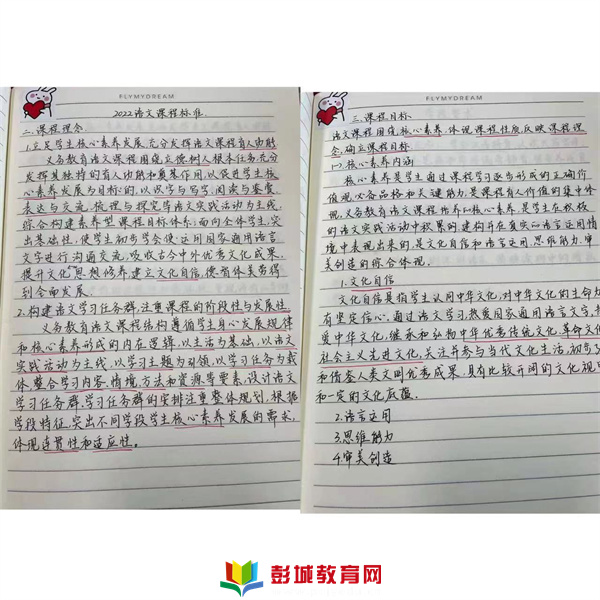 FLYMYDREAM
2022语文课程标准
二.课程理念
1.立足学生核心素养发展,充分发挥语文课程育人功能
义务教育语文课程围绕立德树人根本任务,充分
发挥其独特的育人功能和奠基作用,以促进学生核
心素养发展为目的,以识字与写字、阅读与鉴赏、
表达与交流、梳理与探究等语文实践活动为主线,
综合构建素养型课程目标体系;面向全体学生,突
出基础性,使学生初步学会使运用国家通用语言
文字进行沟通交流,吸收古今中外优秀文化成果,
提升文化思想修养,建立文化自信,德智体美劳得
到全面发展。
2.构建语文学习任务群,注重课程的阶段性与发展性
义务教育语文课程结构遵循学生身心发展规律
和核心素养形成的内在逻辑,以生活为基础,以语文
实践活动为主线,以学习主题为引领,以学习任务为载
体,整合学习内容、情境、方法和资源等要素,设计语文
学习任务群。学习任务群的安排注重整体规划,根据
学段特征,突出不同学段学生核心素养发展的需求,
体现连贯性和适应性。
FLYMYDREAM
三.课程目标
语文课程围绕核心素养,体现课程性质,反映课程理
念,确立课程目标
(一)核心素养内涵
核心素养是学生通过课程学习逐步形成的正确价
值观、必备品格和关键能力,是课程育人价值的集中体
现。义务教育语文课程培养的核心素养,是学生在积极
的语文实践活动中积累的、建构并在真实的语言运用情
境中表现出来的,是文化自信和语言运用、思维能力、审
美创造的综合体现。
1.文化自信
文化自信是指学生认同中华文化,对中华文化的生命力
有坚定信心。通过语文学习,热爱国家通用语言文字,热
爱中华文化,继承和弘扬中华优秀传统文化、革命文化、
社会主义先进文化,关注并参与当代文化生活,初步了
和借鉴人类文明优秀成果,具有比较开阔的文化视
和一定的文化底蕴。
2.语言运用
3.思维能力
4.审美创造
彭城教育网